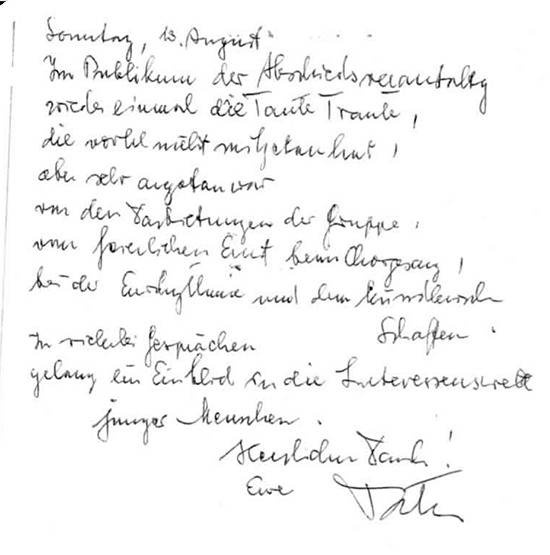 Sonntag, 13. August
Im Publikum der Abschiedsveranstaltg
wieder einmal die Tante Traute,
die wohl nicht mitgetan hat,
aber sehr angetan war
von den Darbietungen der Gruppe,
vom feierlichen Ernst beim Chorgesang,
bei der Eurhythmie und dem künstlerischen
Schaffen.
In vielerlei Gesprächen
gelang ein Einblick in die Interessenswelt
junger Menschen.
Herzlichen Dank!
Eure